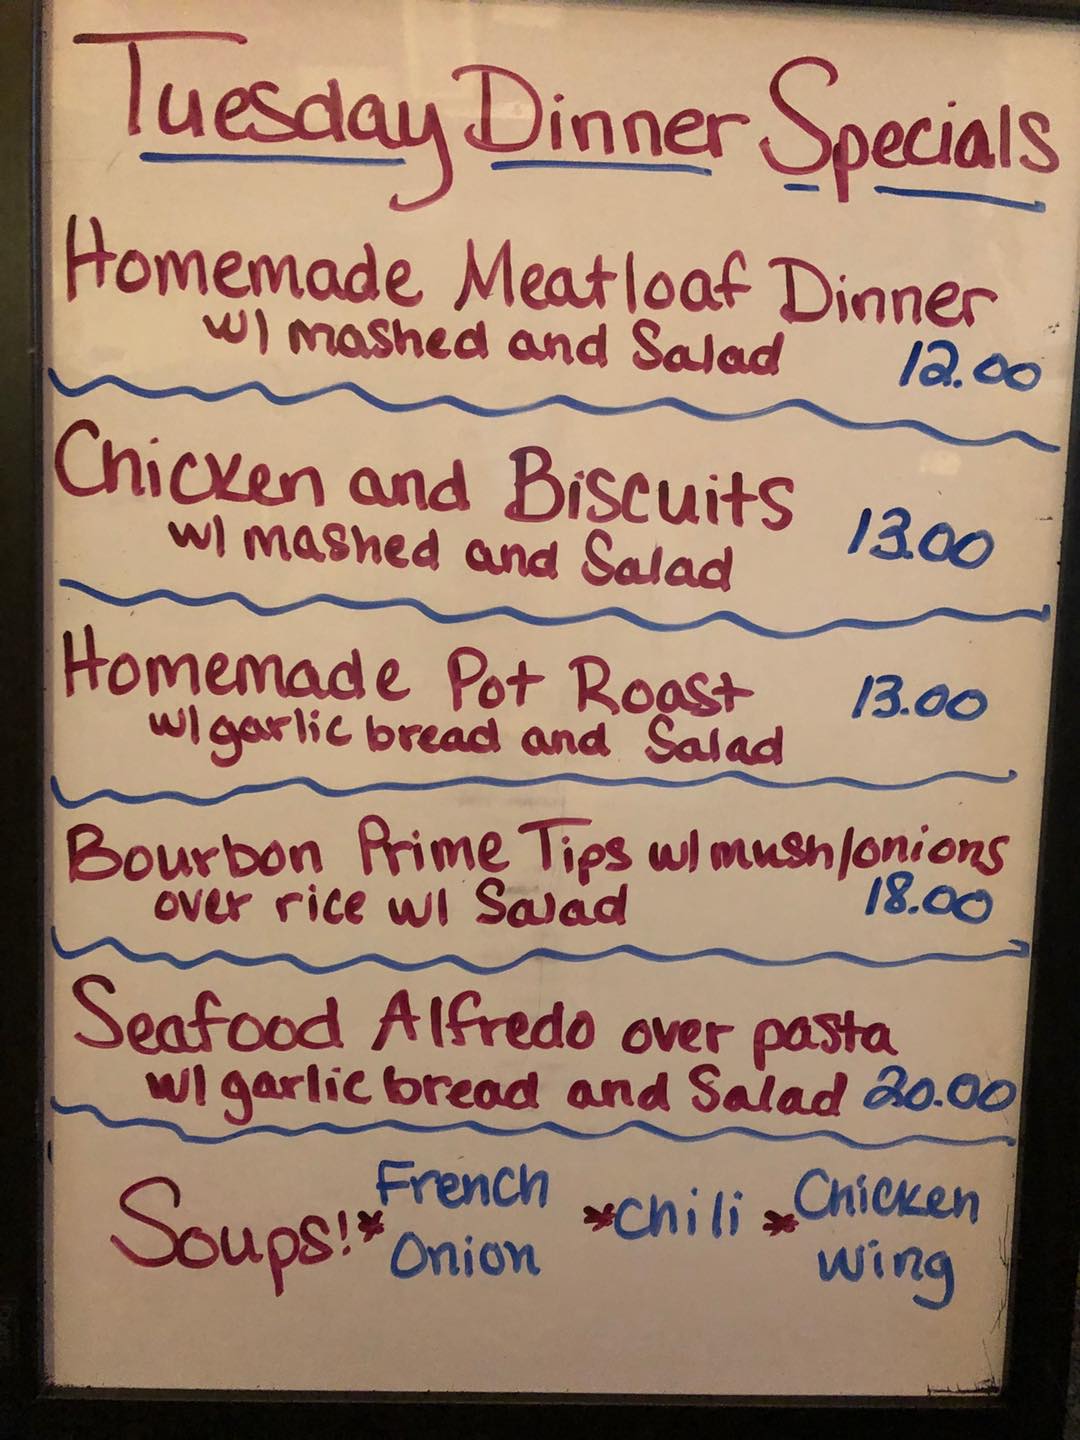 Tuesday Dinner Specials
Homemade Meatloaf Dinner
w/ mashed and Salad 12.00
Chicken and Biscuits
w/ mashed and Salad 13.00
Homemade Pot Roast 13.00
w/ garlic bread and Salad
Bourbon Prime Tips w/ mush/onions
over rice w/ Salad 18.00
Seafood Alfredo over pasta
w/ garlic bread and Salad 20.00
Soups! *French Onion *Chili *Chicken Wing